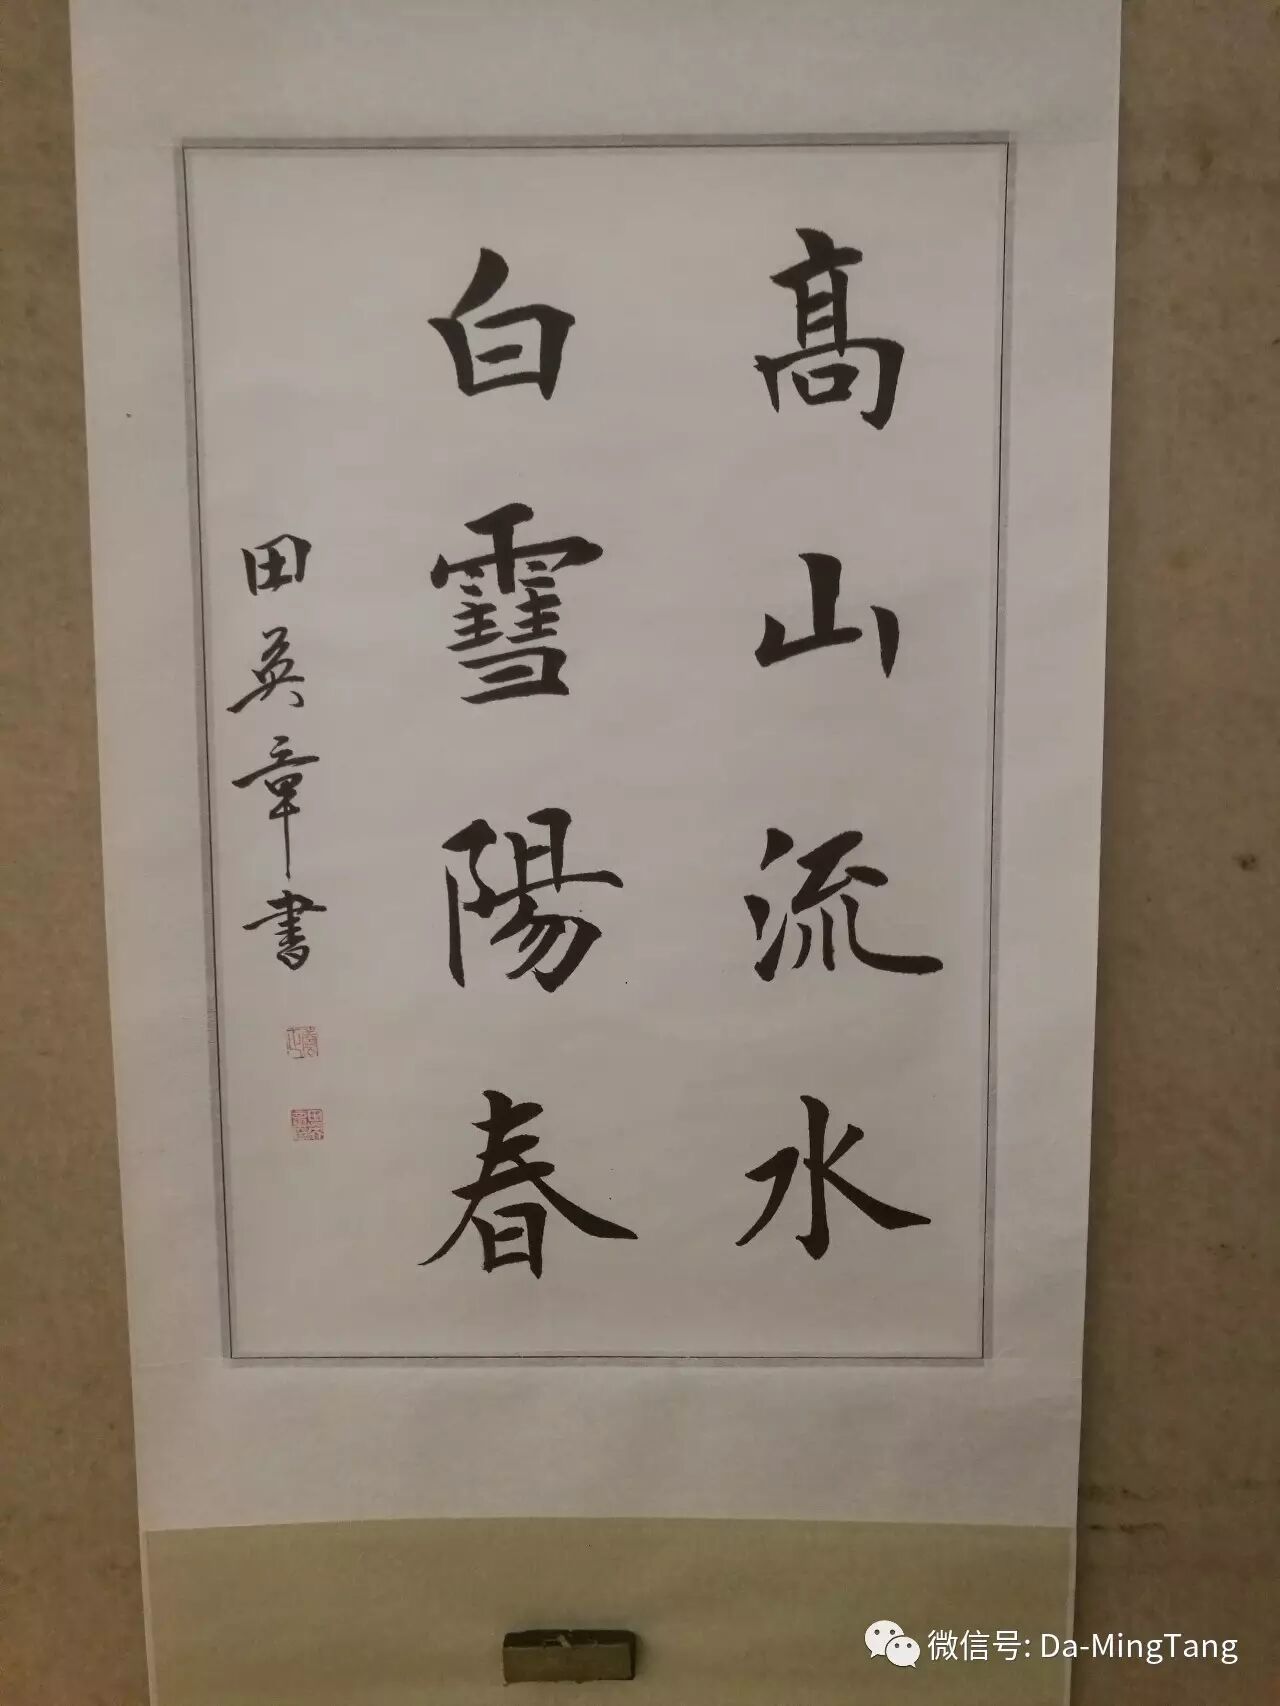 髙山流水
白雪陽春
田英章書
微信号: Da-MingTang